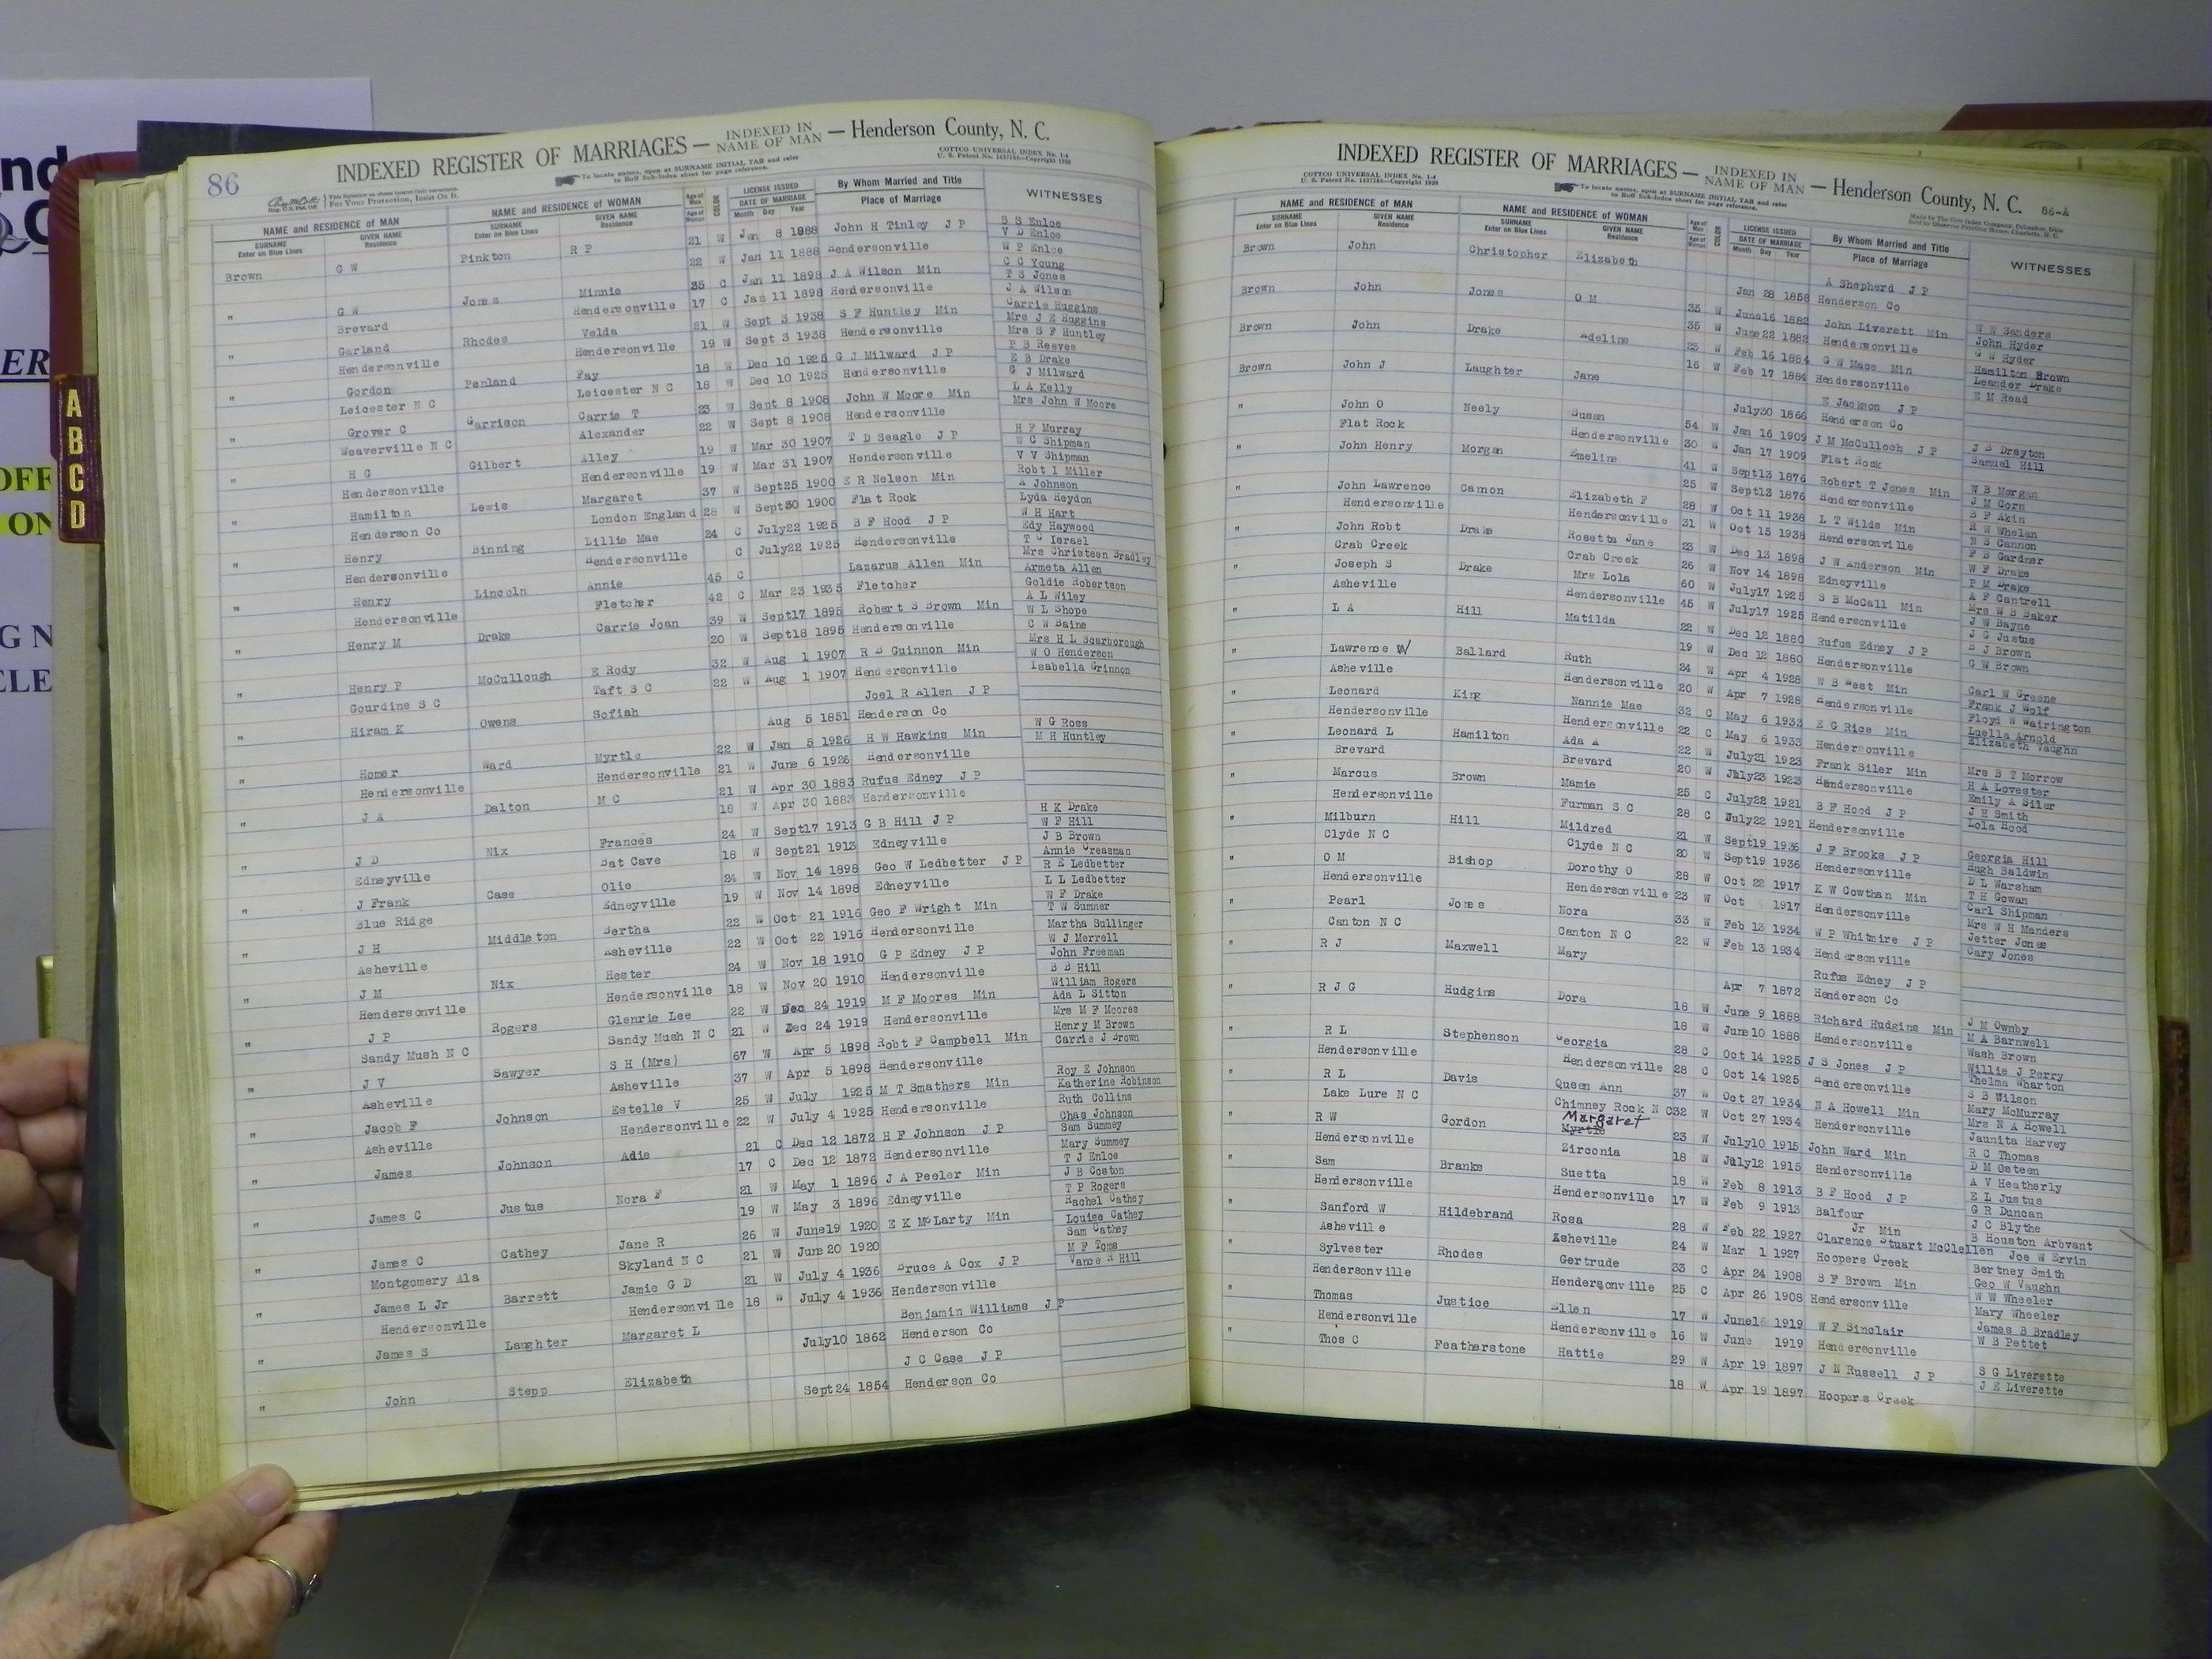 86
INDEXED REGISTER OF MARRIAGES — INDEXED IN NAME OF MAN — Henderson County, N. C.
To locate names, open at SURNAME INITIAL TAB and refer to Buff Sub-Index sheet for page reference.
COTTCO UNIVERSAL INDEX No. 1-4
NAME and RESIDENCE OF MAN NAME and RESIDENCE OF WOMAN COLOR LICENSE ISSUED By Whom Married and Title WITNESSES
SURNAME GIVEN NAME SURNAME GIVEN NAME DATE OF MARRIAGE Place of Marriage
Enter on Blue Lines Residence Enter on Blue Lines Residence Month Day Year
Brown G W Pinkton R P 21 W Jan 8 1888 John H Tinley J P S S Enloe
V D Enloe
22 W Jan 11 1888 Hendersonville W P Enloe
" G W Jones Minnie 35 C Jan 11 1898 J A Wilson Min C C Young
T S Jones
Brevard Hendersonville 17 C Jan 11 1898 Hendersonville J A Wilson
" Garland Rhodes Velda 21 W Sept 3 1938 S F Huntley Min Carrie Huggins
Mrs J E Huggins
Hendersonville Hendersonville 19 W Sept 3 1938 Hendersonville Mrs S F Huntley
" Gordon Penland Fay 18 W Dec 10 1925 G J Milward J P P B Reeves
E B Drake
Leicester N C Leicester N C 18 W Dec 10 1925 Hendersonville G J Milward
" Grover C Garrison Carrie T 23 W Sept 8 1908 John W Moore Min L A Kelly
Weaverville N C Alexander 22 W Sept 8 1908 Hendersonville Mrs John W Moore
" H G Gilbert Alley 19 W Mar 30 1907 T D Seagle J P H F Murray
W C Shipman
Hendersonville Hendersonville 19 W Mar 31 1907 Hendersonville V V Shipman
" Hamilton Lewis Margaret 37 W Sept25 1900 E R Nelson Min Robt I Miller
A Johnson
Henderson Co London England 28 W Sept30 1900 Flat Rock Lyda Heydon
" Henry Binning Lillie Mae 24 C July22 1925 B F Hood J P W H Hart
Edy Haywood
Hendersonville Hendersonville C July22 1925 Hendersonville T C Israel
" Henry Lincoln Annie 45 C Lazarus Allen Min Mrs Christeen Bradley
Armeta Allen
Hendersonville Fletcher 42 C Mar 23 1935 Fletcher Goldie Robertson
" Henry M Drake Carrie Joan 39 W Sept17 1895 Robert S Brown Min A L Wiley
W L Shope
20 W Sept18 1895 Hendersonville C W Baine
" Henry P McCullough E Rody 32 W Aug 1 1907 R B Guinnon Min Mrs H L Scarborough
W O Henderson
Gourdine S C Taft S C 22 W Aug 1 1907 Hendersonville Isabella Grinnon
" Hiram K Owens Sofiah Joel R Allen J P
Aug 5 1851 Henderson Co
" Homer Ward Myrtle 22 W Jan 5 1926 H W Hawkins Min W G Ross
M H Huntley
Hendersonville Hendersonville 21 W June 6 1926 Hendersonville
" J A Dalton M C 21 W Apr 30 1883 Rufus Edney J P
18 W Apr 30 1883 Hendersonville
" J D Nix Frances 24 W Sept17 1913 G B Hill J P H K Drake
W F Hill
Edneyville Bat Cave 18 W Sept21 1913 Edneyville J B Brown
" J Frank Case Olie 24 W Nov 14 1898 Geo W Ledbetter J P Annie Creasman
R E Ledbetter
Blue Ridge Edneyville 19 W Nov 14 1898 Edneyville L L Ledbetter
" J H Middleton Bertha 22 W Oct 21 1916 Geo F Wright Min W F Drake
T W Sumner
Asheville Asheville 22 W Oct 22 1916 Hendersonville Martha Sullinger
" J M Nix Hester 24 W Nov 18 1910 G P Edney J P W J Merrell
John Freeman
Hendersonville Hendersonville 18 W Nov 20 1910 Hendersonville B B Hill
" J P Rogers Glenrie Lee 22 W Dec 24 1919 M F Moores Min William Rogers
Ada L Sitton
Sandy Mush N C Sandy Mush N C 21 W Dec 24 1919 Hendersonville Mrs M F Moores
" J V Sawyer S H (Mrs) 67 W Apr 5 1898 Robt F Campbell Min Henry M Brown
Carrie J Brown
Asheville Asheville 37 W Apr 5 1898 Hendersonville
" Jacob F Johnson Estelle V 25 W July 1925 M T Smathers Min Roy E Johnson
Katherine Robinson
Asheville Hendersonville 22 W July 4 1925 Hendersonville Ruth Collins
" James Johnson Adie 21 C Dec 12 1872 H F Johnson J P Chas Johnson
Sam Summey
17 C Dec 12 1872 Hendersonville Mary Summey
" James C Justus Nora F 21 W May 1 1896 J A Peeler Min T J Enloe
J B Coston
19 W May 3 1896 Edneyville T P Rogers
" James C Cathey Jane R 26 W June19 1920 E K McLarty Min Rachel Cathey
Louise Cathey
Montgomery Ala Skyland N C 21 W June 20 1920 Sam Cathey
" James L Jr Barrett Jamie G D 21 W July 4 1936 Bruce A Cox J P M F Toms
Vance R Hill
Hendersonville Hendersonville 18 W July 4 1936 Hendersonville
" James S Laughter Margaret L Benjamin Williams J P
July10 1862 Henderson Co
" John Stepp Elizabeth J C Case J P
Sept24 1854 Henderson Co
INDEXED REGISTER OF MARRIAGES — INDEXED IN NAME OF MAN — Henderson County, N. C. 86-A
COTTCO UNIVERSAL INDEX No. 1-4
To locate names, open at SURNAME INITIAL TAB and refer to Buff Sub-Index sheet for page reference.
NAME and RESIDENCE OF MAN NAME and RESIDENCE OF WOMAN LICENSE ISSUED By Whom Married and Title WITNESSES
SURNAME GIVEN NAME SURNAME GIVEN NAME DATE OF MARRIAGE Place of Marriage
Enter on Blue Lines Residence Enter on Blue Lines Residence Month Day Year
Brown John Christopher Elizabeth A Shepherd J P
Jan 28 1858 Henderson Co
Brown John Jones O M 35 W June16 1882 John Liverett Min W W Sanders
John Hyder
35 W June22 1882 Hendersonville G W Hyder
Brown John Drake Adeline 23 W Feb 16 1884 G W Mace Min Hamilton Brown
Leander Drake
16 W Feb 17 1884 Hendersonville E M Read
Brown John J Laughter Jane E Jackson J P
July30 1866 Henderson Co
" John O Neely Susan 54 W Jan 16 1909 J M McCulloch J P J B Drayton
Samuel Hill
Flat Rock Hendersonville 30 W Jan 17 1909 Flat Rock
" John Henry Morgan Emeline 41 W Sept13 1876 Robert T Jones Min W B Morgan
J M Corn
25 W Sept13 1876 Hendersonville B F Akin
" John Lawrence Camon Elizabeth F 28 W Oct 11 1938 L T Wilds Min R W Whelan
N S Cannon
Hendersonville Hendersonville 31 W Oct 15 1938 Hendersonville F B Gardner
" John Robt Drake Rosetta Jane 23 W Dec 13 1898 J W Anderson Min W F Drake
P M Drake
Crab Creek Crab Creek 26 W Nov 14 1898 Edneyville A F Cantrell
" Joseph S Drake Mrs Lola 60 W July17 1925 S B McCall Min Mrs W B Baker
J W Bayne
Asheville Hendersonville 45 W July17 1925 Hendersonville J C Justus
" L A Hill Matilda 22 W Dec 12 1880 Rufus Edney J P B J Brown
G W Brown
19 W Dec 12 1880 Hendersonville
" Lawrence W Ballard Ruth 24 W Apr 4 1928 W B West Min Carl W Greene
Frank J Wolf
Asheville Hendersonville 20 W Apr 7 1928 Hendersonville Floyd W Wairington
" Leonard King Nannie Mae 32 C May 6 1933 E G Rice Min Luella Arnold
Elizabeth Vaughn
Hendersonville Hendersonville 22 C May 6 1933 Hendersonville
" Leonard L Hamilton Ada A 22 W July21 1923 Frank Siler Min Mrs B T Morrow
H A Lovester
Brevard Brevard 20 W July23 1923 Hendersonville Emily A Siler
" Marcus Brown Mamie 25 C July22 1921 B F Hood J P J H Smith
Lola Hood
Hendersonville Furman S C 28 C July22 1921 Hendersonville
" Milburn Hill Mildred 21 W Sept19 1936 J F Brooks J P Georgia Hill
Hugh Baldwin
Clyde N C Clyde N C 20 W Sept19 1936 Hendersonville D L Warsham
" O M Bishop Dorothy O 28 W Oct 22 1917 K W Cowthan Min T H Gowan
Carl Shipman
Hendersonville Hendersonville 23 W Oct 1917 Hendersonville Mrs W H Manders
" Pearl Jones Nora 33 W Feb 13 1934 W P Whitmire J P Jetter Jones
Cary Jones
Canton N C Canton N C 22 W Feb 13 1934 Hendersonville
" R J Maxwell Mary Rufus Edney J P
Apr 7 1872 Henderson Co
" R J G Hudgins Dora 18 W June 9 1888 Richard Hudgins Min J M Ownby
M A Barnwell
18 W June10 1888 Hendersonville Wash Brown
" R L Stephenson Georgia 28 C Oct 14 1925 J S Jones J P Willie J Perry
Thelma Wharton
Hendersonville Hendersonville 28 C Oct 14 1925 Hendersonville S B Wilson
" R L Davis Queen Ann 37 W Oct 27 1934 N A Howell Min Mary McMurray
Mrs N A Howell
Lake Lure N C Chimney Rock N C 32 W Oct 27 1934 Hendersonville Jaunita Harvey
" R W Gordon Margaret Myrtle 23 W July10 1915 John Ward Min R C Thomas
D M Osteen
Hendersonville Zirconia 18 W July12 1915 Hendersonville A V Heatherly
" Sam Branks Suetta 18 W Feb 8 1913 B F Hood J P E L Justus
G R Duncan
Hendersonville Hendersonville 17 W Feb 9 1913 Balfour J C Blythe
" Sanford W Hildebrand Rosa 28 W Feb 22 1927 Clarence Stuart McClellen Jr Min B Houston Arbvant
Joe W Ervin
Asheville Asheville 24 W Mar 1 1927 Hoopers Creek Bertney Smith
" Sylvester Rhodes Gertrude 33 C Apr 24 1908 B F Brown Min Geo W Vaughn
W W Wheeler
Hendersonville Hendersonville 25 C Apr 26 1908 Hendersonville Mary Wheeler
" Thomas Justice Ellen 17 W June16 1919 W F Sinclair James B Bradley
W B Pettet
Hendersonville Hendersonville 16 W June 1919 Hendersonville
" Thos C Featherstone Hattie 29 W Apr 19 1897 J N Russell J P S G Liverette
J E Liverette
18 W Apr 19 1897 Hoopers Creek
A
B
C
D